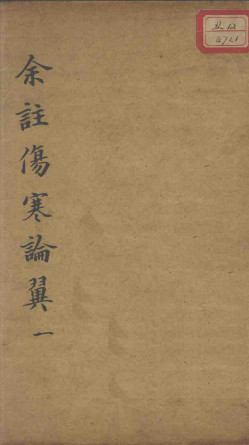 余註傷寒論翼 一